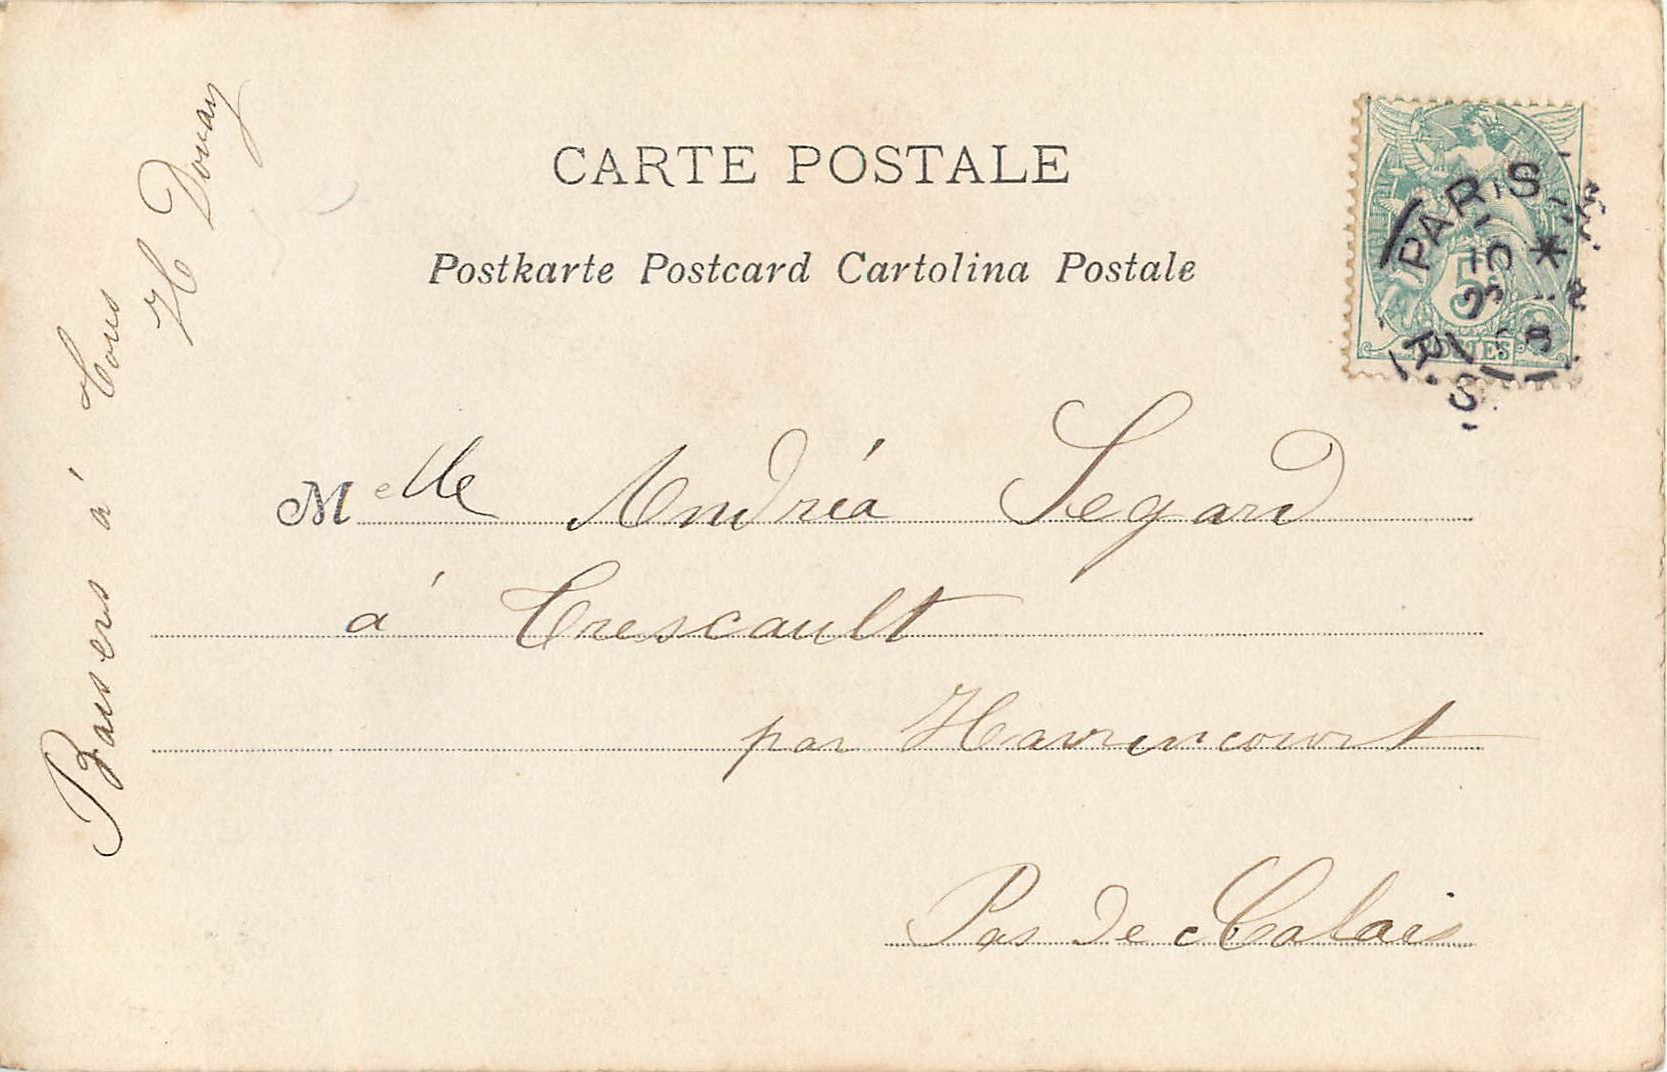 CARTE POSTALE
Postkarte Postcard Cartolina Postale
Melle Andréa Segard
à Trescault
par Havrincourt
Pas de Calais
Baisers à Tous
H Douay
PARIS
5
POSTES